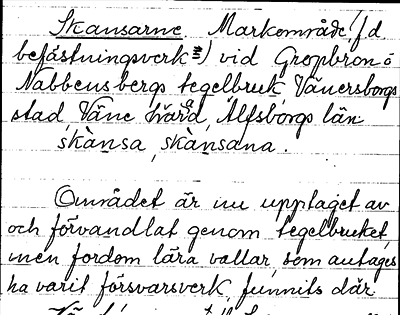 Skansarne. Markområde (f d
befästningsverk) vid Gropbron o
Nabbensbergs tegelbruk, Vänersborgs
stad, Väne härad, Älfsborgs län
skànsa, skànsana.
Området är nu upptaget av
och förvandlat genom tegelbruket,
men fordom lära vallar, som antages
ha varit försvarsverk, funnits där.